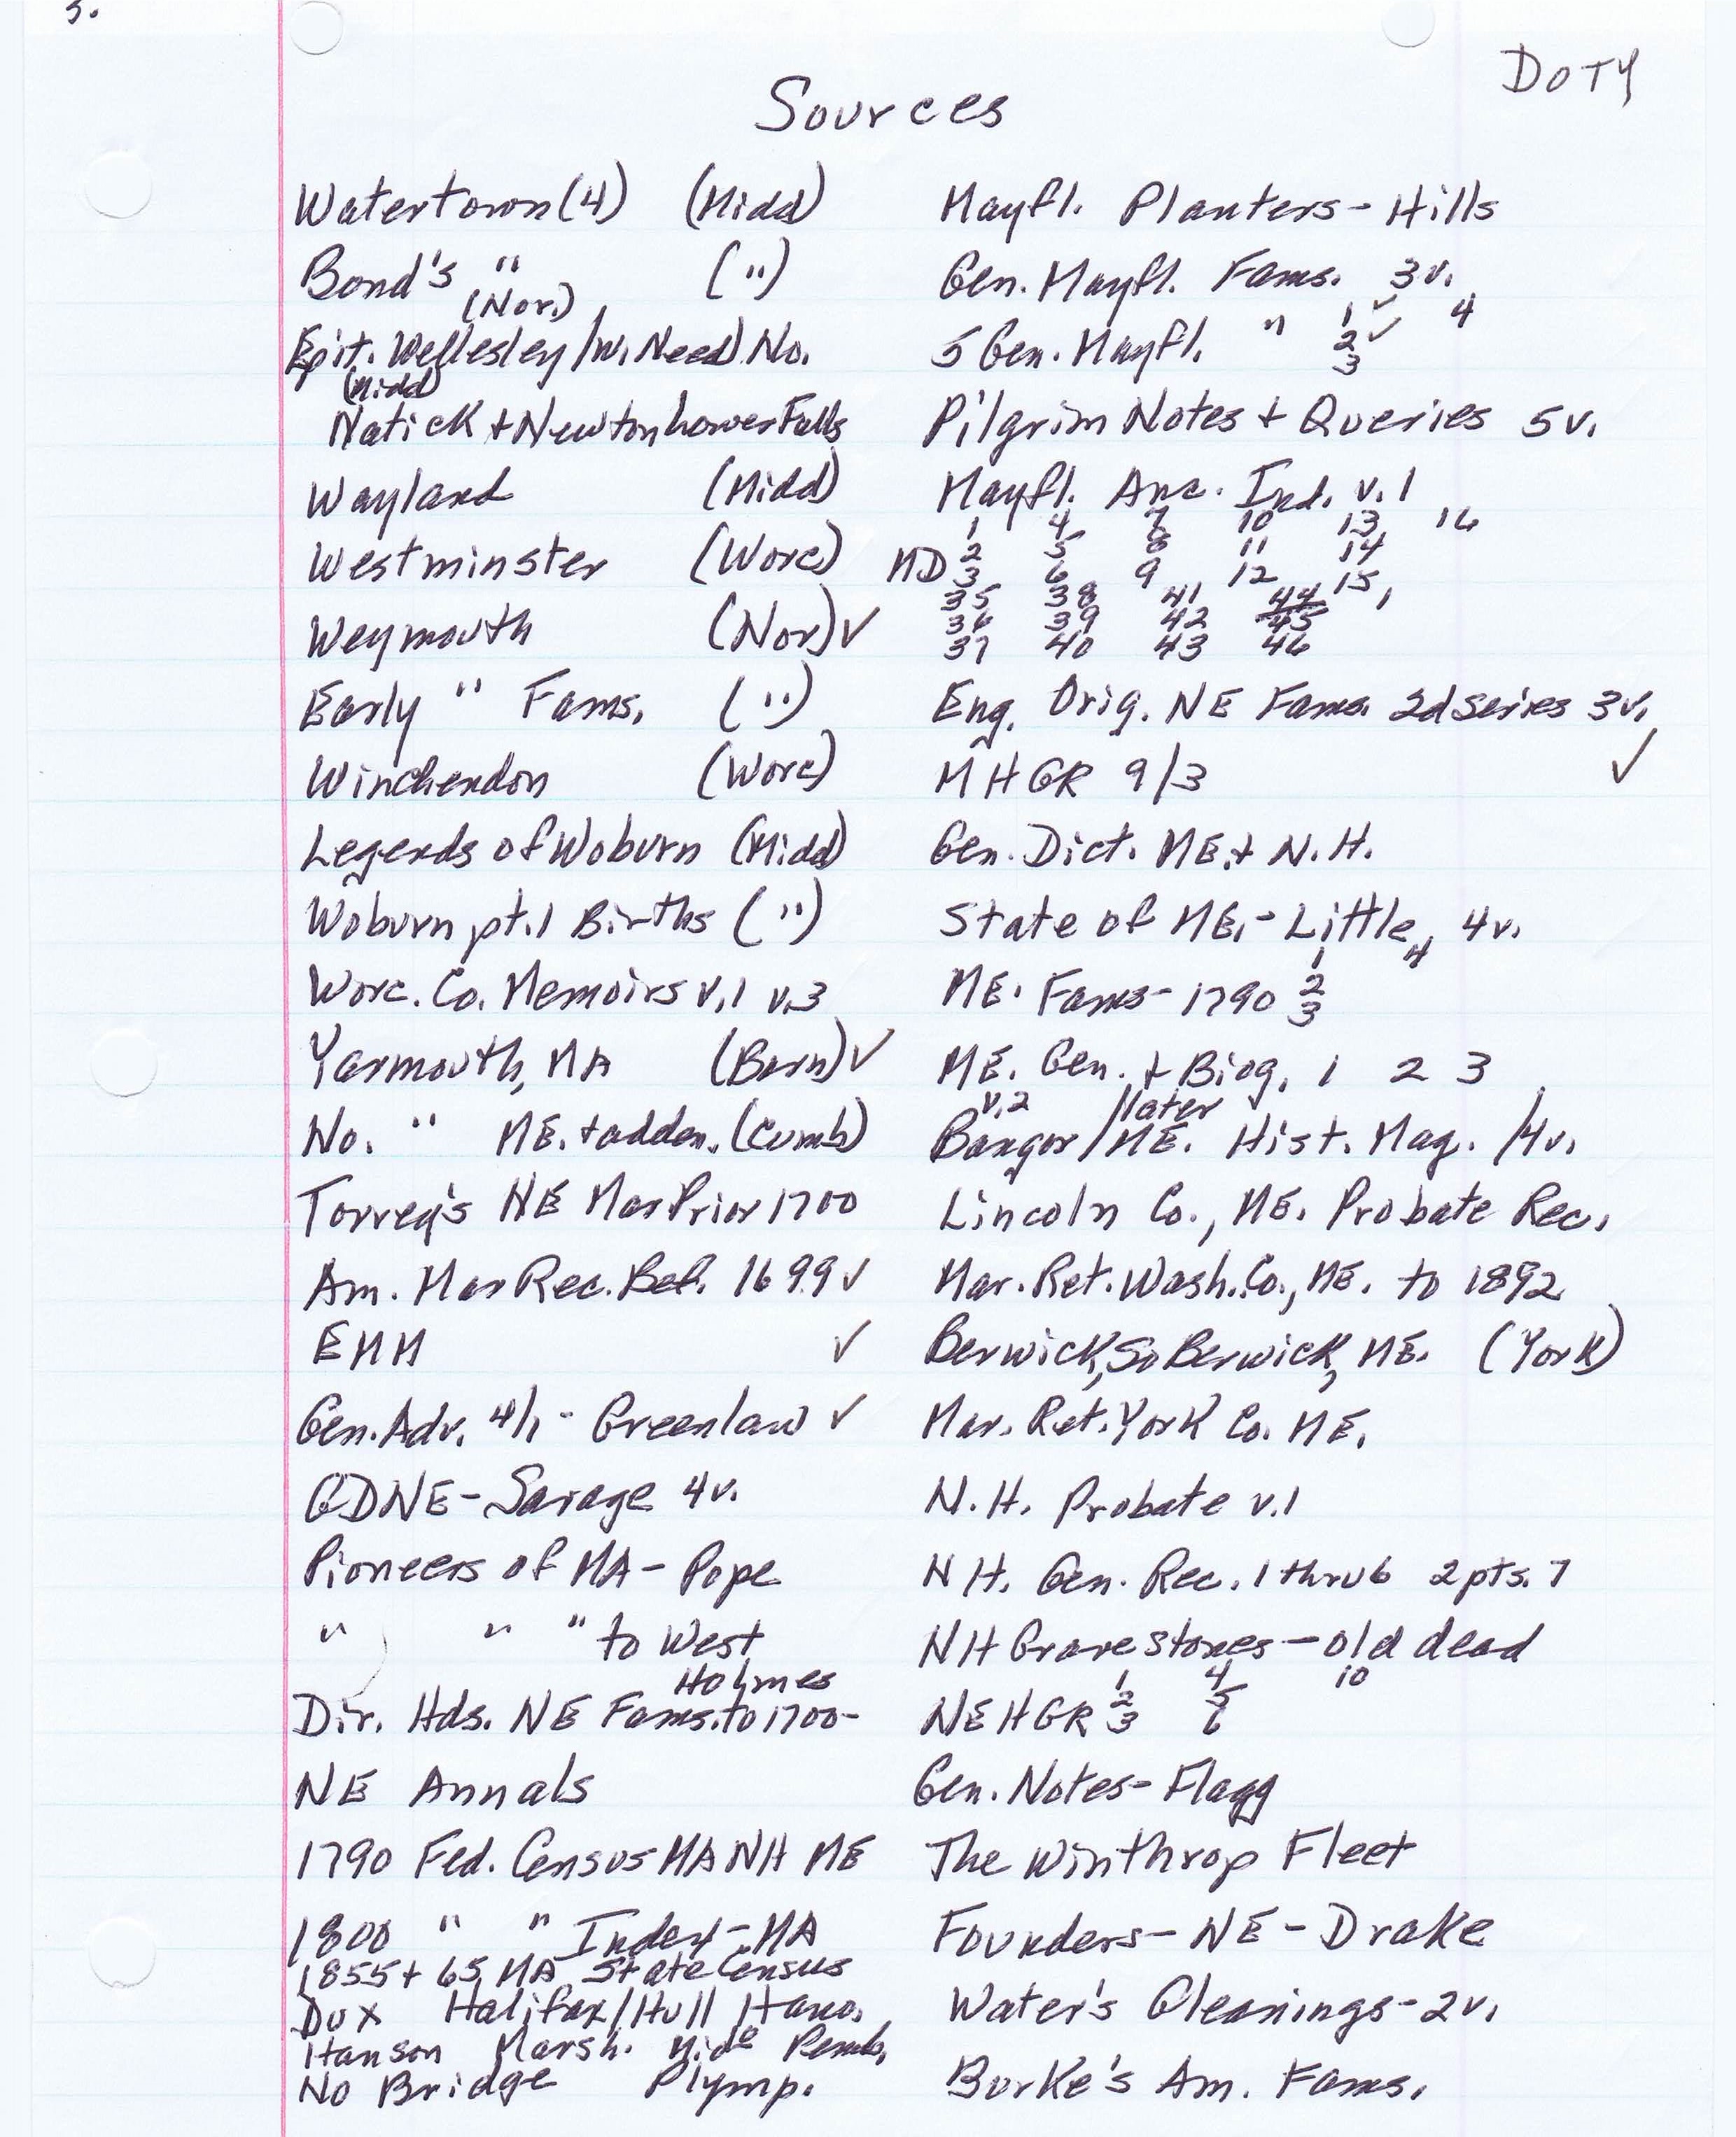 5.
DOTY
Sources
Watertown (4) (Midd)
Bond's " (")
(Nor.)
Epit. Wellesley/W. Need. No.
(Midd)
Natick + Newton Lower Falls
Wayland (Midd)
Westminster (Worc)
Weymouth (Nor) ✓
Early " Fams. (")
Winchendon (Worc)
Legends of Woburn (Midd)
Woburn pt. 1 Births (")
Worc. Co. Memoirs v.1 v.3
Yarmouth, MA (Barn) ✓
No. " ME. + adden. (Cumb)
Torrey's NE Mar Prior 1700
Am. Mar Rec. Bef. 1699 ✓
EMM ✓
Gen. Adv. 4/1 - Greenlaw ✓
GDNE - Savage 4v.
Pioneers of MA - Pope
" " " to West
Holmes
Dir. Hds. NE Fams. to 1700-
NE Annals
1790 Fed. Census MA NH ME
1800 " " Index - MA
1855 + 65 MA State Census
Dux Halifax/Hull Hano.
Hanson Marsh. Mid° Pemb.
No Bridge Plymp.
Mayfl. Planters - Hills
Gen. Mayfl. Fams. 3v.
1 ✓ 4
5 Gen. Mayfl. " 2 ✓
3
Pilgrim Notes + Queries 5v.
Mayfl. Anc. Ind. v. 1
1 4 7 10 13 16
MD 2 5 8 11 14
3 6 9 12 15,
35 38 41 44
36 39 42 45
37 40 43 46
Eng. Orig. NE Fams. 2d Series 3v.
MHGR 9/3 ✓
Gen. Dict. ME. + N.H.
State of ME. - Little, 4v.
1 4
ME. Fams - 1790 2
3
ME. Gen. + Biog. 1 2 3
v.2 /later
Bangor/ME. Hist. Mag. /4v.
Lincoln Co., ME. Probate Rec.
Mar. Ret. Wash. Co., ME. to 1892
Berwick, So Berwick, ME. (York)
Mar. Ret. York Co. ME.
N.H. Probate v.1
N H. Gen. Rec. 1 thru 6 2 pts. 7
NH Gravestones - old dead
1 4 10
NEHGR 2 5
3 6
Gen. Notes - Flagg
The Winthrop Fleet
Founders - NE - Drake
Water's Gleanings - 2v.
Burke's Am. Fams.